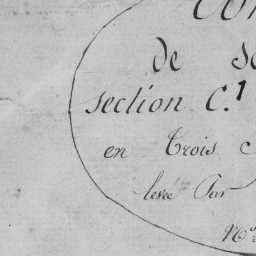 COM
de se
section C.1
en Trois c
levée Par
Mr